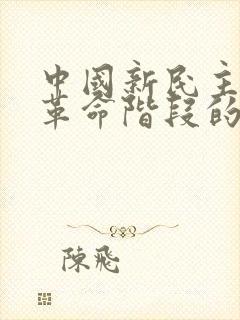 中國新民主
革命階段的
陳飛